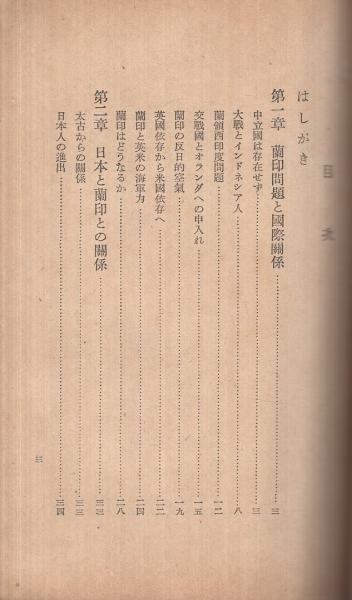 目次
はしがき
第一章 蘭印問題と國際關係……三
中立國は存在せず……三
大戰とインドネシア人……八
蘭領西印度問題……一二
交戰國とオランダへの申入れ……一五
蘭印の反日的空氣……一九
英國依存から米國依存へ……二二
蘭印と英米の海軍力……二四
蘭印はどうなるか……二八
第二章 日本と蘭印との關係……三三
太古からの關係……三三
日本人の進出……三四
三